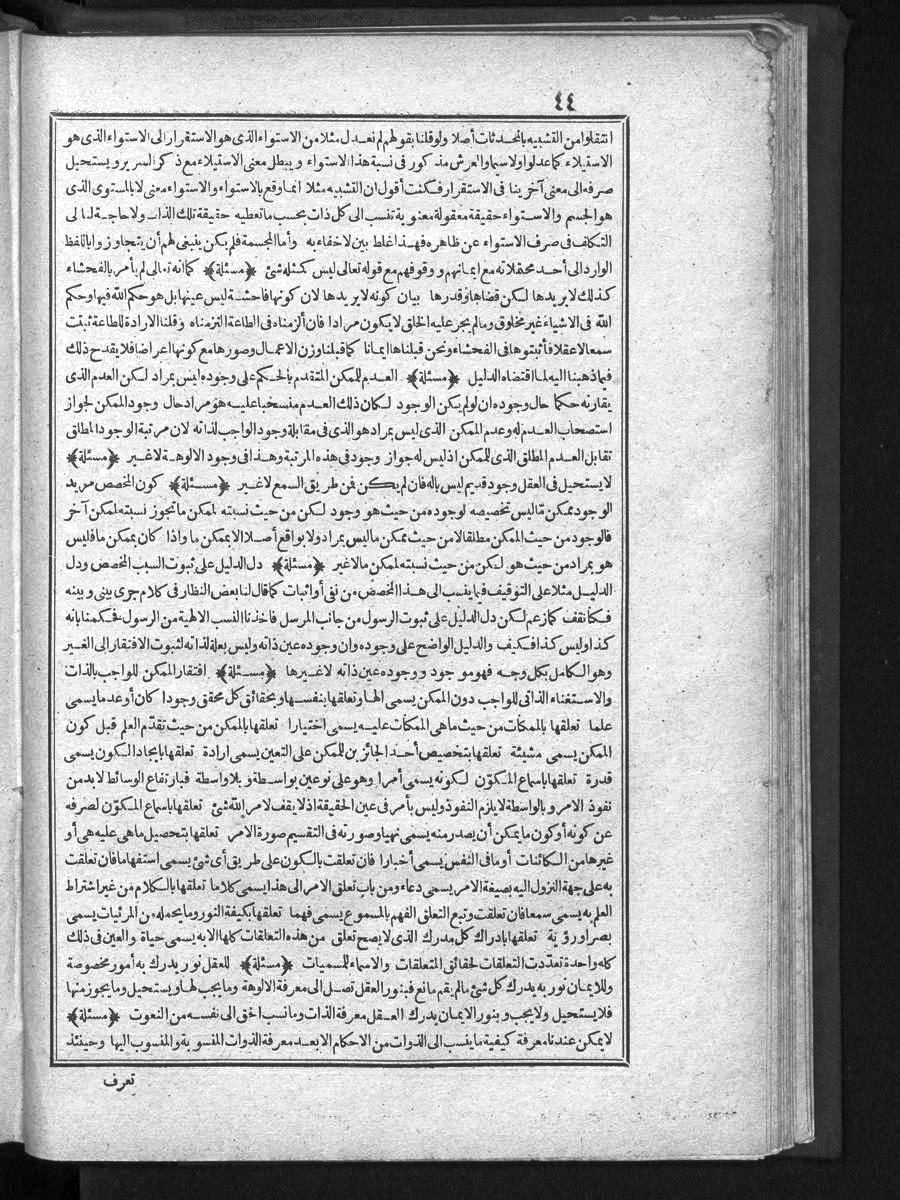 ٤٤
انتقلوا من التشبيه بالمحدثات أصلا ولو قلنا بقولهم لم نعدل مثلا من الاستواء الذى هو الاستقرار الى الاستواء الذى هو
الاستيلاء كما عدلوا ولاسيما والعرش مذكور فى نسبة هذا الاستواء ويبطل معنى الاستيلاء مع ذكر السرير ويستحيل
صرفه الى معنى آخر ينافى الاستقرار فكنت أقول ان التشبيه مثلا انما وقع بالاستواء والاستواء معنى لا بالمستوى الذى
هو الجسم والاستواء حقيقة معقولة معنوية تنسب الى كل ذات بحسب ما تعطيه حقيقة تلك الذات ولا حاجة لنا الى
التكلف فى صرف الاستواء عن ظاهره فهذا غلط بين لا خفاء به وأما المجسمة فلم يكن ينبغى لهم أن يتجاوزوا باللفظ
الوارد الى أحد محتملاته مع ايمانهم ووقوفهم مع قوله تعالى ليس كمثله شئ ﴿مسئلة﴾ كما انه تعالى لم يأمر بالفحشاء
كذلك لا يريدها لكن قضاها وقدرها بيان كونه لا يريدها لان كونها فاحشة ليس عينها بل هو حكم الله فيها وحكم
الله فى الاشياء غير مخلوق وما لم يجر عليه الخلق لا يكون مرادا فان ألزمناه فى الطاعة التزمناه وقلنا الارادة للطاعة ثبتت
سمعا لا عقلا فأثبتوها فى الفحشاء ونحن قبلناها ايمانا كما قبلنا وزن الاعمال وصورها مع كونها اعراضا فلا يقدح ذلك
فيما ذهبنا اليه لما اقتضاه الدليل ﴿مسئلة﴾ العدم للممكن المتقدم بالحكم على وجوده ليس بمراد لكن العدم الذى
يقارنه حكما حال وجوده ان لو لم يكن الوجود لكان ذلك العدم منسحبا عليه هو مراد حال وجود الممكن لجواز
استصحاب العدم له وعدم الممكن الذى ليس بمراد هو الذى فى مقابلة وجود الواجب لذاته لان مرتبة الوجود المطلق
تقابل العدم المطلق الذى للممكن اذ ليس له جواز وجود فى هذه المرتبة وهذا فى وجود الالوهة لا غير ﴿مسئلة﴾
لا يستحيل فى العقل وجود قديم ليس باله فان لم يكن فمن طريق السمع لا غير ﴿مسئلة﴾ كون المخصص مريد
الوجود ممكن ما ليس تخصيصه لوجوده من حيث هو وجود لكن من حيث نسبته لممكن ما تجوز نسبته لممكن آخر
فالوجود من حيث الممكن مطلقا لا من حيث ممكن ما ليس بمراد ولا بواقع أصلا الا بممكن ما واذا كان بممكن ما فليس
هو بمراد من حيث هو لكن من حيث نسبته لممكن ما لا غير ﴿مسئلة﴾ دل الدليل على ثبوت السبب المخصص ودل
الدليل مثلا على التوقيف فيما ينسب الى هذا المخصص من نفى أو اثبات كما قال لنا بعض النظار فى كلام جرى بينى وبينه
فكنا نقف كما زعم لكن دل الدليل على ثبوت الرسول من جانب المرسل فاخذنا النسب الالهية من الرسول فحكمنا بانه
كذا وليس كذا فكيف والدليل الواضح على وجوده وان وجوده عين ذاته وليس بعلة لذاته لثبوت الافتقار الى الغير
وهو الكامل بكل وجه فهو موجود ووجوده عين ذاته لا غيرها ﴿مسئلة﴾ افتقار الممكن للواجب بالذات
والاستغناء الذاتى للواجب دون الممكن يسمى الها وتعلقها بنفسها وبحقائق كل محقق وجودا كان أو عدما يسمى
علما تعلقها بالممكنات من حيث ما هى الممكنات عليه يسمى اختيارا تعلقها بالممكن من حيث تقدم العلم قبل كون
الممكن يسمى مشيئة تعلقها بتخصيص أحد الجائزين للممكن على التعيين يسمى ارادة تعلقها بايجاد الكون يسمى
قدرة تعلقها باسماع المكوّن لكونه يسمى أمرا وهو على نوعين بواسطة وبلا واسطة فبارتفاع الوسائط لابد من
نفوذ الامر وبالواسطة لا يلزم النفوذ وليس بأمر فى عين الحقيقة اذ لا يقف لامر الله شئ تعلقها باسماع المكوّن لصرفه
عن كونه أو كون ما يمكن أن يصدر منه يسمى نهيا وصورته فى التقسيم صورة الامر تعلقها بتحصيل ما هى عليه هى أو
غيرها من الكائنات أو ما فى النفس يسمى أخبارا فان تعلقت بالكون على طريق أى شئ يسمى استفهاما فان تعلقت
به على جهة النزول اليه بصيغة الامر يسمى دعاء ومن باب تعلق الامر الى هذا يسمى كلاما تعلقها بالكلام من غير اشتراط
العلم به يسمى سمعا فان تعلقت وتبع التعلق الفهم بالمسموع يسمى فهما تعلقها بكيفة النور وما يحمله من المرئيات يسمى
بصرا ورؤية تعلقها بادراك كل مدرك الذى لا يصح تعلق من هذه التعلقات كلها الا به يسمى حياة والعين فى ذلك
كله واحدة تعدّدت التعلقات لحقائق المتعلقات والاسماء للمسميات ﴿مسئلة﴾ للعقل نور يدرك به أمور مخصوصة
وللايمان نور به يدرك كل شئ ما لم يقم مانع فبنور العقل تصل الى معرفة الالوهة وما يجب لها ويستحيل وما يجوز منها
فلا يستحيل ولا يجب وبنور الايمان يدرك العقل معرفة الذات وما نسب الحق الى نفسه من النعوت ﴿مسئلة﴾
لا يمكن عندنا معرفة كيفية ما ينسب الى الذوات من الاحكام الا بعد معرفة الذوات المنسوبة والمنسوب اليها وحينئذ
تعرف